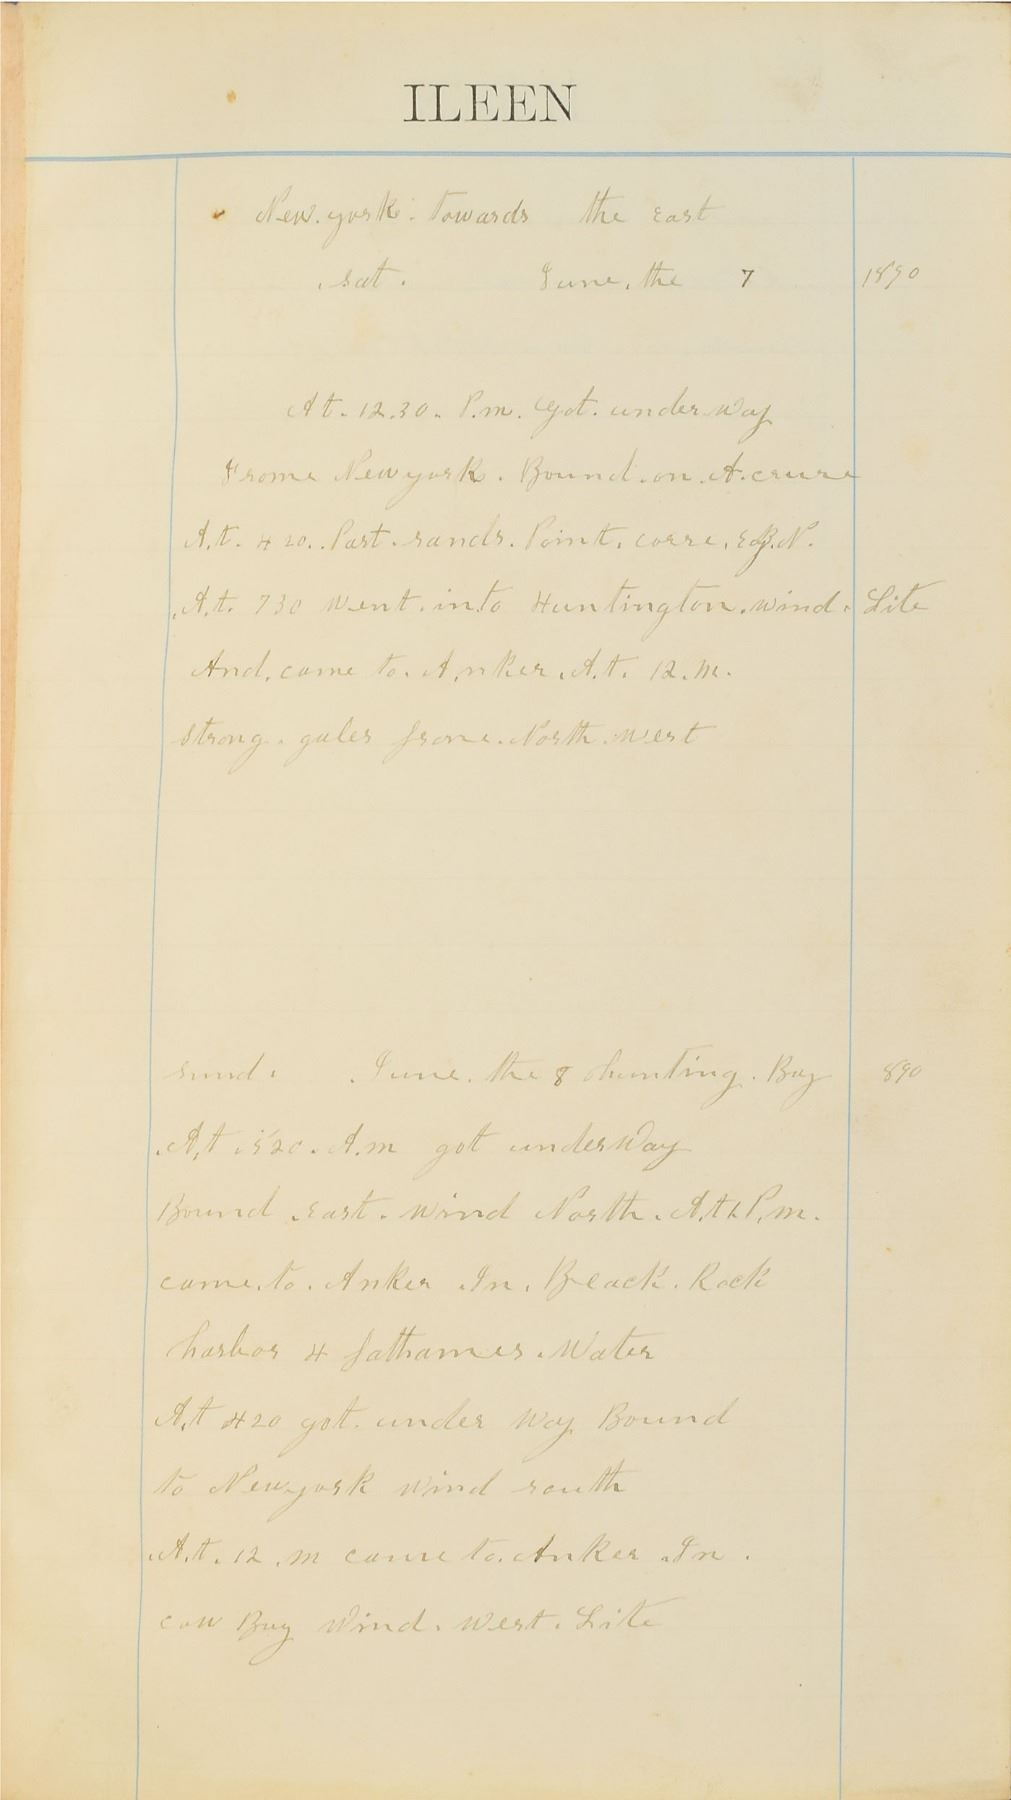 ILEEN
New.york. towards the east
.sat. June.the 7 1890
At.12.30. P.m. Got. under.way
Frome Newyork. Bound.on.A.cruse
A.t. 4 20. Past.sands.Point. corse. E.B.N.
.A.t. 730 went.in.to Huntington.wind. Lite
And.came to.Anker.A.t. 12.m.
strong. gales frome.North.west
sund. .June.the 8 hunting.Bay 890
.A,t .520.A.m got underway
Bound .East.wind North.A.t 1.P.m.
came.to.Anker.In.Black.Rock
harbor 4 fathames.Water
A.t 420 got under way Bound
to Newyork wind south
.A.t.12.m came to.Anker.In.
cow Bay Wind.west.Lite